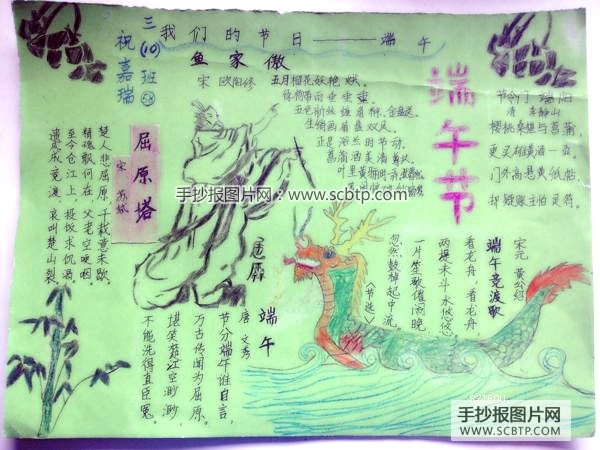 三(10)班
祝嘉瑞
我们的节日——端午
鱼家傲
宋 欧阳修 五月榴花妖艳烘。
绿杨带雨垂垂重。
五色新丝缠角粽,金盘送
生绡画扇盘双凤。
正是浴兰时节动。
菖蒲酒美清尊共。
叶里黄鹂时一弄
端午节
节令门 端阳
清 李静山
樱桃桑椹与菖蒲,
更买雄黄酒一壶。
门外高悬黄纸帖,
却疑账主怕灵符。
屈原塔
宋 苏轼
楚人悲屈原,千载意未歇。
精魂飘何在,父老空哽咽。
至今仓江上,投饭求饥渴。
遗风成竞渡,哀叫楚山裂
屈原
端午
唐 文秀
节分端午谁自言,
万古传闻为屈原。
堪笑楚江空渺渺,
不能洗得直臣冤。
宋元 黄公绍
端午竞波歌
看龙舟,看龙舟,
两堤未斗水悠悠。
一片笙歌催闹晚,
忽然鼓棹起中流。
〈节选〉
手抄报图片网:www.scbtp.com
手抄报图片网
WWW.SCBTP.COM